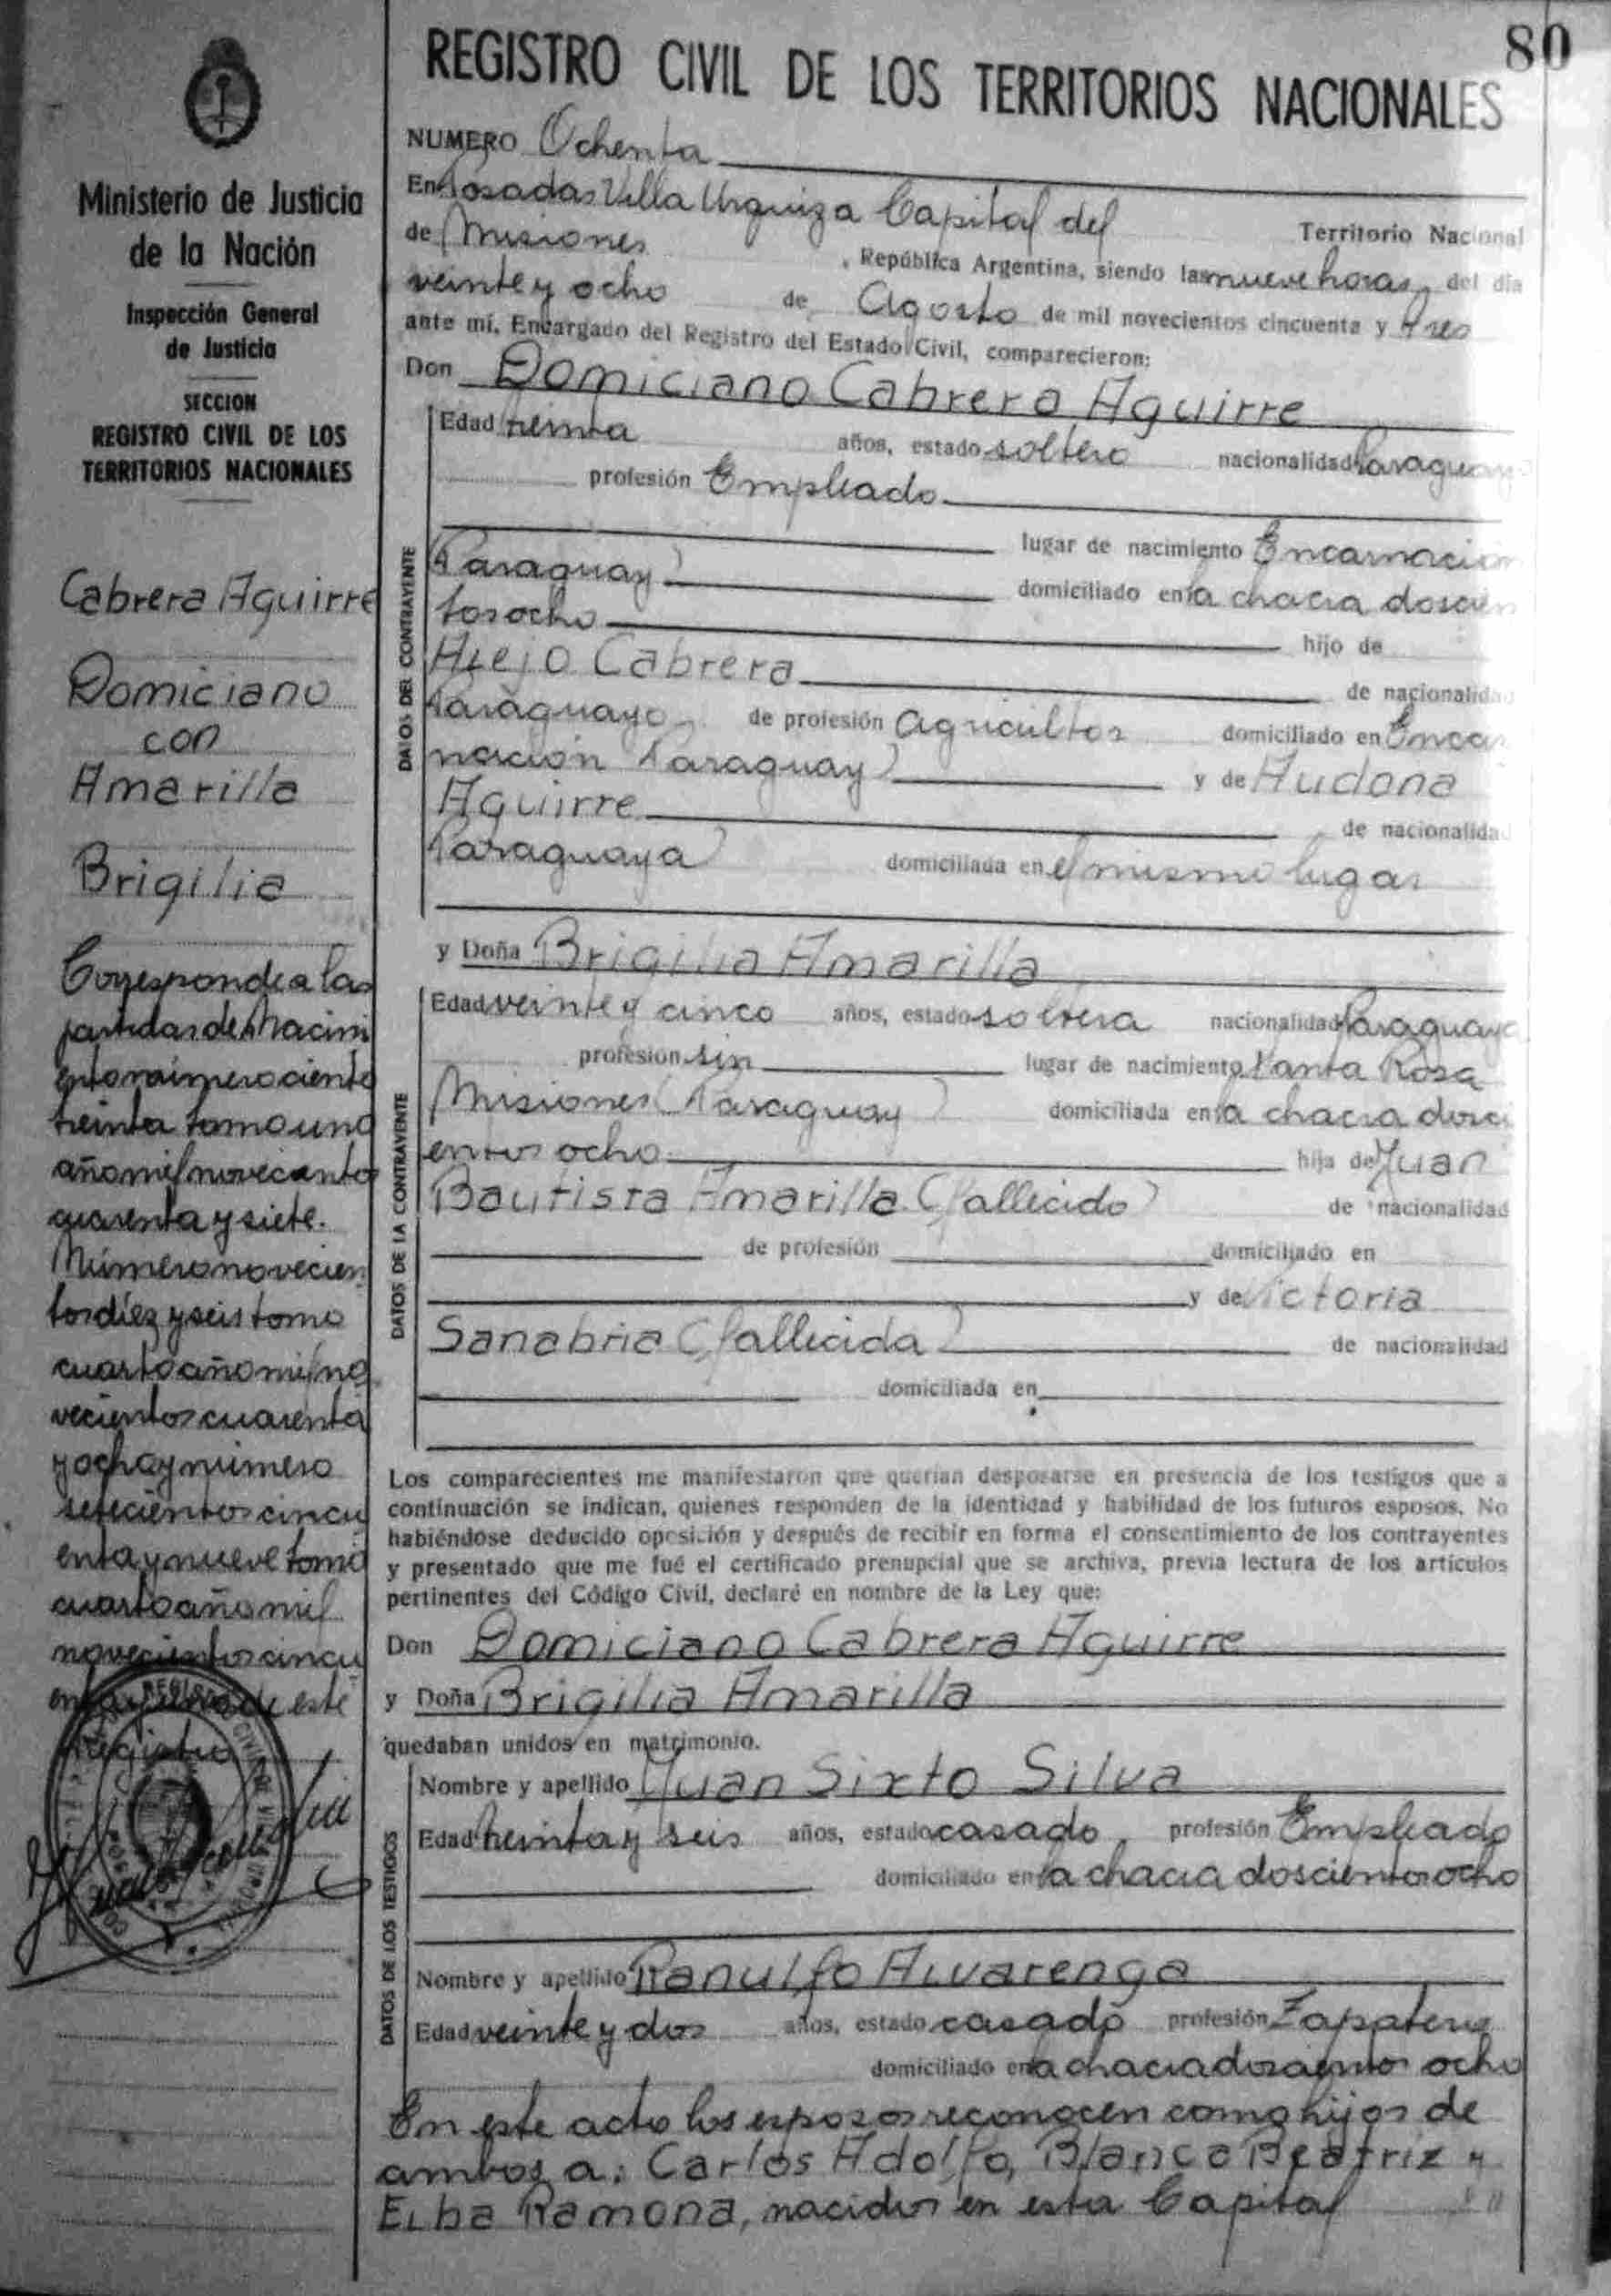 80
REGISTRO CIVIL DE LOS TERRITORIOS NACIONALES
Ministerio de Justicia
de la Nación
Inspección General
de Justicia
SECCION
REGISTRO CIVIL DE LOS
TERRITORIOS NACIONALES
Cabrera Aguirre
Domiciano
con
Amarilla
Brigilia
Corresponde a las
partidas de Nacimi
ento número ciento
treinta tomo uno
año mil novecientos
cuarenta y siete.
Número novecien
tos diez y seis tomo
cuarto año mil no
vecientos cuarenta
y ocho y número
setecientos cincu
enta y nueve tomo
cuarto año mil
novecientos cincu
de este
Registro
NUMERO Ochenta
En Posadas Villa Urquiza Capital del Territorio Nacional
de Misiones, República Argentina, siendo las nueve horas, del día
veinte y ocho de Agosto de mil novecientos cincuenta y tres
ante mí, Encargado del Registro del Estado Civil, comparecieron:
Don Domiciano Cabrera Aguirre
DATOS DEL CONTRAYENTE
Edad treinta años, estado soltero nacionalidad Paraguay
profesión Empleado
lugar de nacimiento Encarnación
(Paraguay) domiciliado en la chacra doscien
tos ocho hijo de
Alejo Cabrera de nacionalidad
Paraguayo de profesión agricultor domiciliado en Encar
nación (Paraguay) y de Audona
Aguirre de nacionalidad
Paraguaya domiciliada en el mismo lugar
y Doña Brigilia Amarilla
DATOS DE LA CONTRAYENTE
Edad veinte y cinco años, estado soltera nacionalidad Paraguaya
profesión sin lugar de nacimiento Santa Rosa
Misiones (Paraguay) domiciliada en la chacra dosci
entos ocho hija de Juan
Bautista Amarilla (fallecido) de nacionalidad
de profesión domiciliado en
y de Victoria
Sanabria (fallecida) de nacionalidad
domiciliada en
Los comparecientes me manifestaron que querían desposarse en presencia de los testigos que a
continuación se indican, quienes responden de la identidad y habilidad de los futuros esposos. No
habiéndose deducido oposición y después de recibir en forma el consentimiento de los contrayentes
y presentado que me fué el certificado prenupcial que se archiva, previa lectura de los artículos
pertinentes del Código Civil, declaré en nombre de la Ley que:
Don Domiciano Cabrera Aguirre
y Doña Brigilia Amarilla
quedaban unidos en matrimonio.
DATOS DE LOS TESTIGOS
Nombre y apellido Juan Sixto Silva
Edad treinta y seis años, estado casado, profesión Empleado
domiciliado en la chacra doscientos ocho
Nombre y apellido Ranulfo Alvarenga
Edad veinte y dos años, estado casado profesión Zapatero
domiciliado en la chacra doscientos ocho
En este acto los esposos reconocen como hijos de
ambos a: Carlos Adolfo, Blanca Beatriz y
Elba Ramona, nacidos en esta Capital